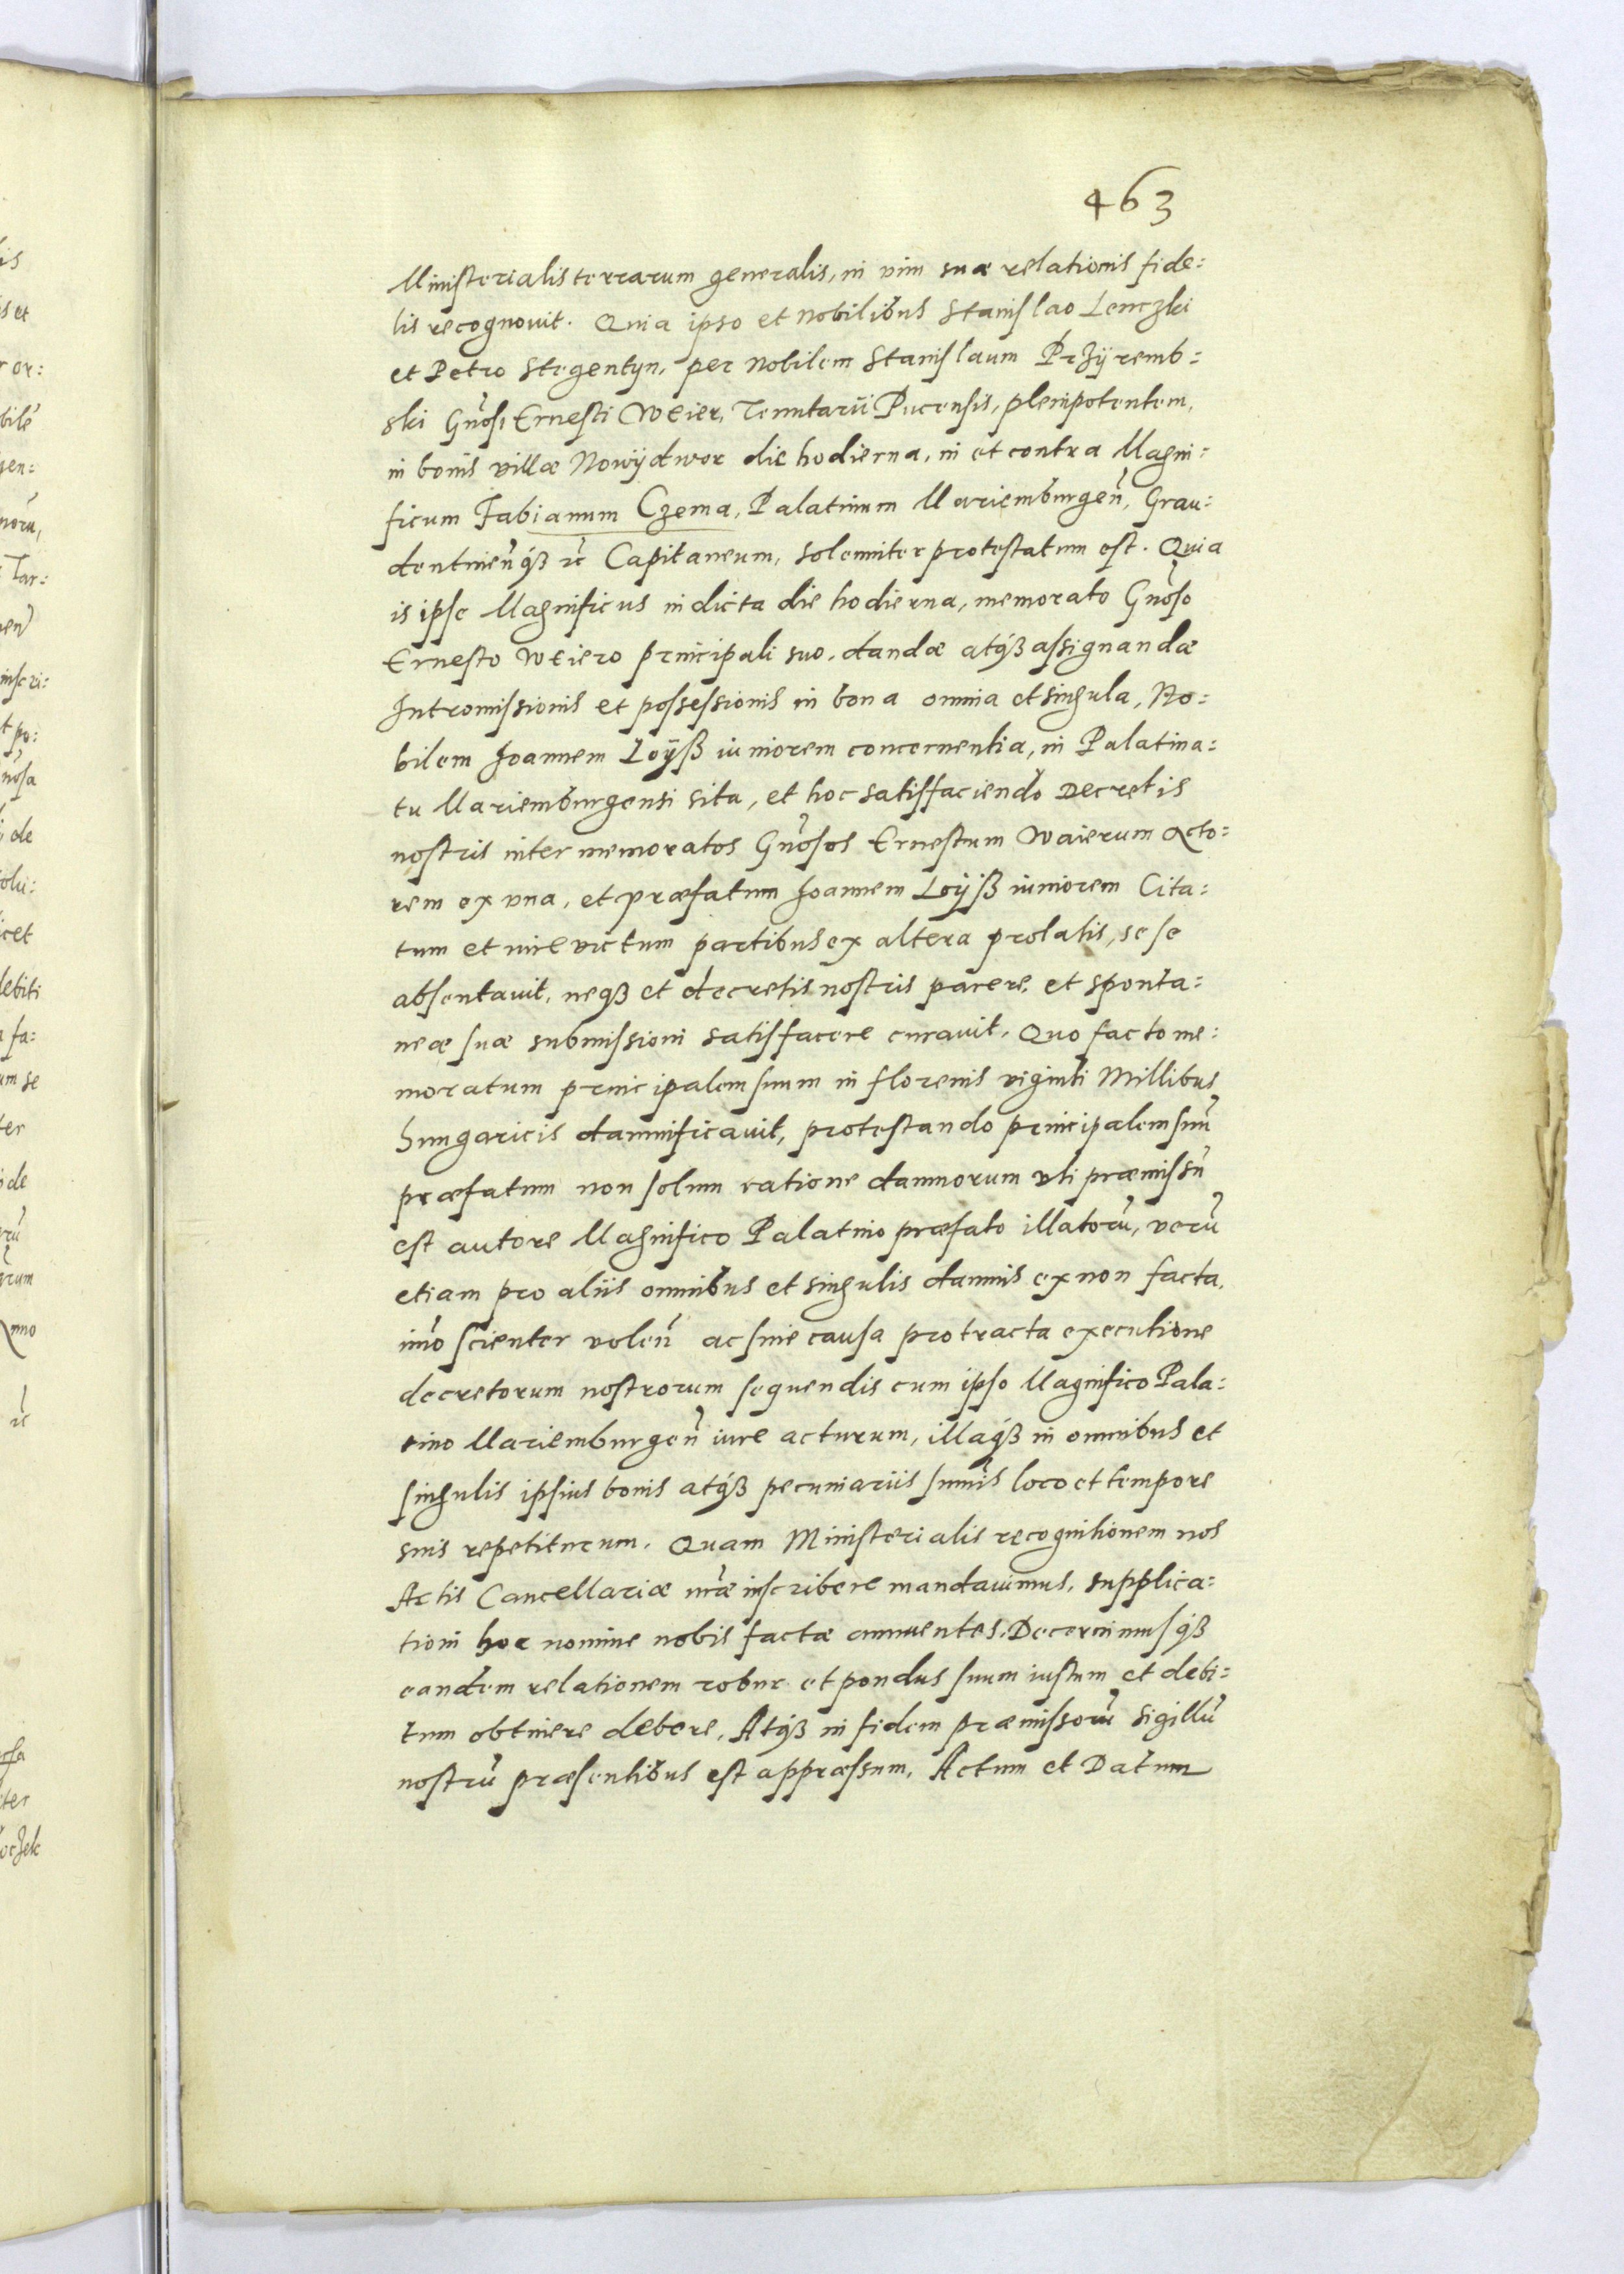 463
Ministerialis terrarum generalis, in vim suæ relationis fide:
lis recognouit. Quia ipso et Nobilibus Stanislao Lenczki
et Petro Stegentyn, per Nobilem Stanislaum Przÿremb:
ski Gnõsi Ernesti Weier, Tenutarii Pucensis, plenipotentem,
in bonis villæ Nowÿdwor die hodierna, in et contra Magni:
ficum Fabianum Czema, Palatinum Mariemburgeñ, Grau:
dentineñqȝ ꝛc Capitaneum, solemniter protestatum est. Quia
is ipse Magnificus in dicta die hodierna, memorato Gnõso
Ernesto Weiero principali suo, dandæ atqȝ assignandæ
Intromissionis et possessionis in bona omnia et singula, No:
bilem Joannem Loÿß iuniorem concernentia, in Palatina:
tu Mariemburgensi sita, et hoc satisfaciendo Decretis
nostris inter memoratos Gnõsos Ernestum Waierum Acto:
rem ex vna, et præfatum Joannem Loÿß iuniorem Cita:
tum et iure victum partibus ex altera prolatis, se se
absentauit, neqȝ et decretis nostris parere, et sponta:
neæ suæ submissioni satisfacere curauit. Quo facto me:
moratum principalem suum in florenis viginti Millibus
hungaricis damnificauit, protestando principalem suũ
præfatum non solum ratione damnorum vti præmissũ
est autore Magnifico Palatino præfato illatorũ, verũ
etiam pro aliis omnibus et singulis damnis ex non facta,
imõ scienter voleñ ac sine causa protracta executione
decretorum nostrorum sequendis cum ipso Magnifico Pala:
tino Mariemburgeñ iure acturum, illaqȝ in omnibus et
singulis ipsius bonis atqȝ pecuniariis summis loco et tempore
suis repetiturum. Quam Ministerialis recognitionem nos
Actis Cancellariæ nr̃æ inscribere mandauimus, supplica:
tioni hoc nomine nobis factæ annuentes. Decernimusqȝ
eandem relationem robur et pondus suum iustum et debi:
tum obtinere debere. Atqȝ in fidem præmissorũ Sigillũ
nostrũ præsentibus est appræssum. Actum et Datum